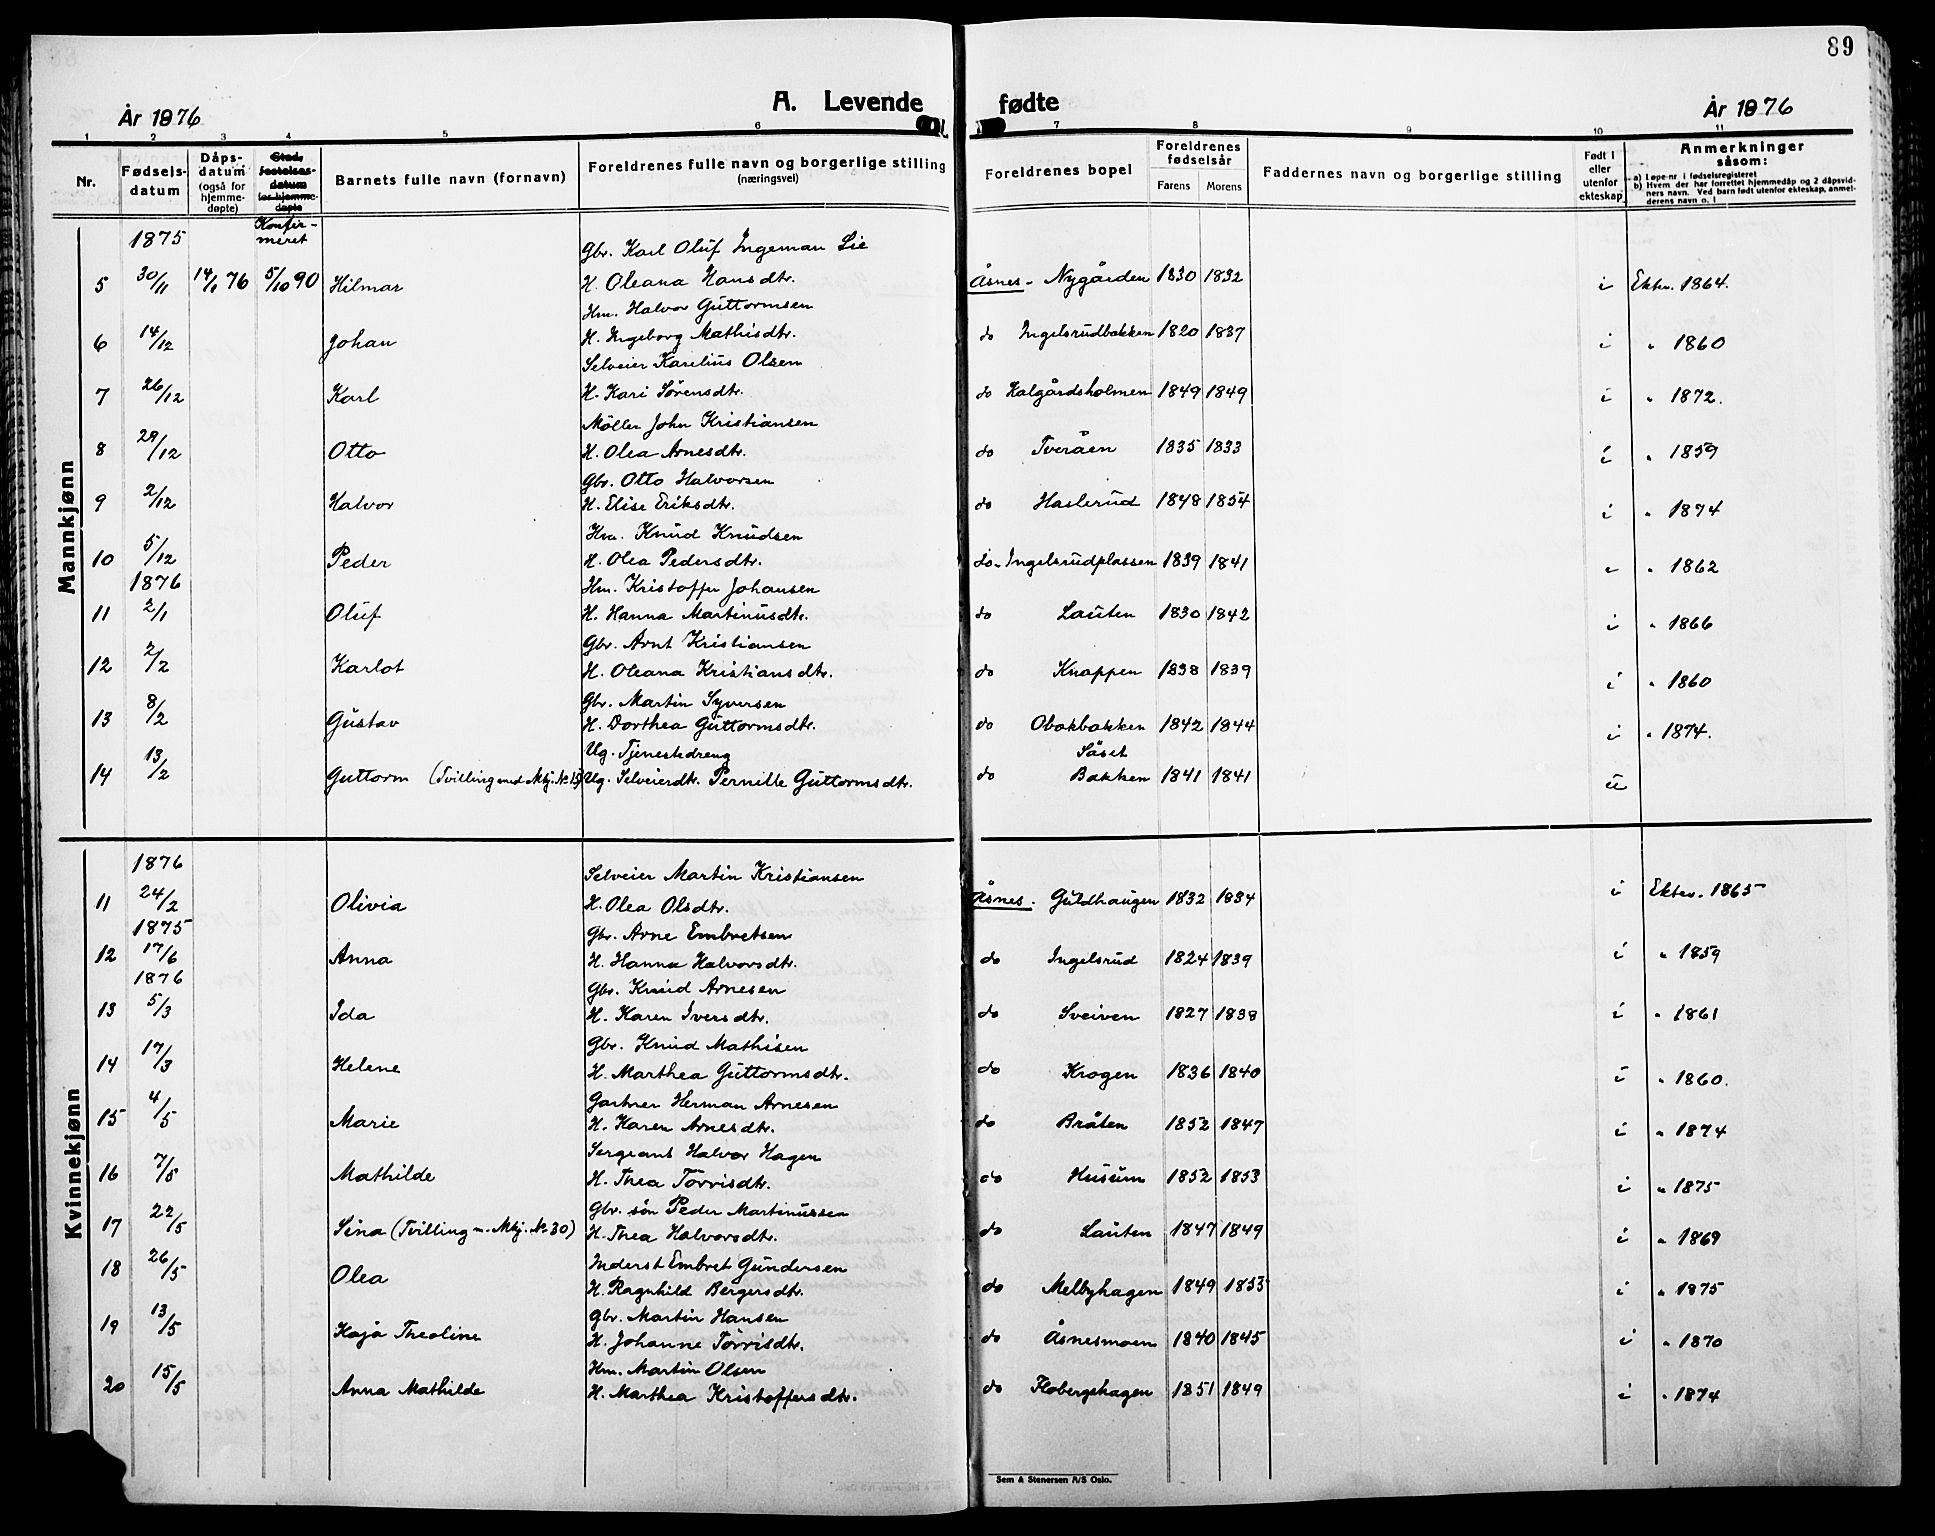 89
År 1876
A. Levende
fødte
År 1876
1 2 3 4 5 6 7 8 9 10 11
Nr.
Fødsels-
datum
Dåps-
datum
(også for
hjemme-
døpte)
Stad-
festelses-
datum
for hjemme-
døpte
Konfir-
meret
Barnets fulle navn (fornavn)
Foreldrenes fulle navn og borgerlige stilling
(næringsvei)
Foreldrenes bopel
Foreldrenes
fødselsår
Farens Morens
Faddernes navn og borgerlige stilling
Født i
eller
utenfor
ekteskap
Anmerkninger
såsom:
a) Løpe-nr. i fødselsregisteret
b) Hvem der har forrettet hjemmedåp og 2 dåpsvid-
ners navn. Ved barn født utenfor ekteskap, anmel-
derens navn o. l.
Mannkjønn
1875 Gbr. Karl Oluf Ingeman Lie
5 30/11 14/1 76 5/10 90 Hilmar H. Oleana Hansdtr. Åsnes - Nygården 1830 1832 i Ektev. 1864.
Hm. Halvor Guttormsen
6 14/12 Johan H. Ingeborg Mathisdtr. do Ingelsrudbakken 1820 1837 i " 1860
Selveier Karelius Olsen
7 26/12 Karl H. Kari Sørensdtr. do Kalgårdsholmen 1849 1849 i " 1872.
Møller John Kristiansen
8 29/12 Otto H. Olea Arnesdtr. do Tveråen 1835 1833 i " 1859
Gbr. Otto Halvorsen
9 2/12 Halvor H. Elise Eriksdtr. do Haslerud 1848 1854 i " 1874
Hm. Knud Knudsen
10 5/12 Peder H. Olea Pedersdtr. do - Ingelsrudplassen 1839 1841 i " 1862
1876 Hm. Kristoffer Johansen
11 2/1 Oluf H. Hanna Martinusdtr. do Lauten 1830 1842 i " 1866
Gbr. Arnt Kristiansen
12 2/2 Karlot H. Oleana Kristiansdtr. do Knappen 1838 1839 i " 1860
Gbr. Martin Syversen
13 8/2 Gustav H. Dorthea Guttormsdtr. do Obakbakken 1842 1844 i " 1874.
Ug. Tjenestedreng Såset
14 13/2 Guttorm (Tvilling med Mkj. Nr. 15) Ug. Selveierdtr. Pernille Guttormsdtr. do Bakken 1841 1841 u
Kvinnekjønn
1876 Selveier Martin Kristiansen
11 24/2 Olivia H. Olea Olsdtr. Åsnes - Guldhaugen 1832 1834 i Ektev. 1865
1875 Gbr. Arne Embretsen
12 17/6 Anna H. Hanna Halvorsdtr. do Ingelsrud 1824 1839 i " 1859
1876 Gbr. Knud Arnesen
13 5/3 Ida H. Karen Iversdtr. do Sveiven 1827 1838 i " 1861
Gbr. Knud Mathisen
14 17/3 Helene H. Marthea Guttormsdtr. do Krogen 1836 1840 i " 1860.
Gartner Herman Arnesen
15 4/5 Marie H. Karen Arnesdtr. do Bråten 1852 1847 i " 1874
Sergeant Halvor Hagen
16 7/5 Mathilde H. Thea Torvisdtr. do Husum 1852 1853 i " 1875
Gbr. søn Peder Martinussen
17 22/5 Sina (Tvilling m. Mkj. Nr. 30) H. Thea Halvorsdtr. do Lauten 1847 1849 i " 1869
Inderst Embret Gundersen
18 26/5 Olea H. Ragnhild Bergersdtr. do Melbyhagen 1849 1853 i " 1875
Gbr. Martin Hansen
19 13/5 Kaja Theoline H. Johanne Torvisdtr. do Åsnesmoen 1840 1845 i " 1870
Hm. Martin Olsen
20 15/5 Anna Mathilde H. Marthea Kristoffersdtr. do Flobergshagen 1851 1849 i " 1874
Sem & Stenersen A/S Oslo.